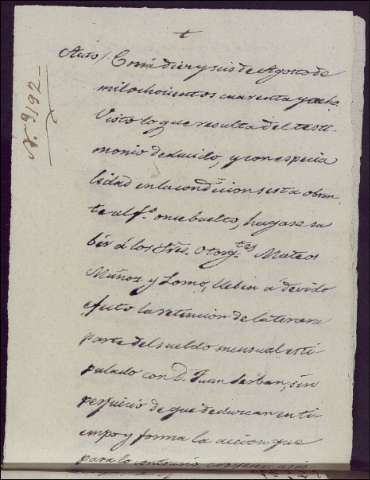 Nº 9/92
t
Auto / Coria diez y seis de Agosto de
mil ochocientos cuarenta y ocho
Visto lo que resulta del testi-
monio deducido, y con especia
lidad en la condicion sesta obran-
te al fº once buelto, hagase sa
ber á los Sres. Otorgtes Mateos
Muñoz y Lomo, lleben á devido
efecto la retencion de la tercera
parte del sueldo mensual esti
pulado con D. Juan Serban, sin
perjuicio de que deduzcan en ti
empo y forma la accion que
para lo contrario